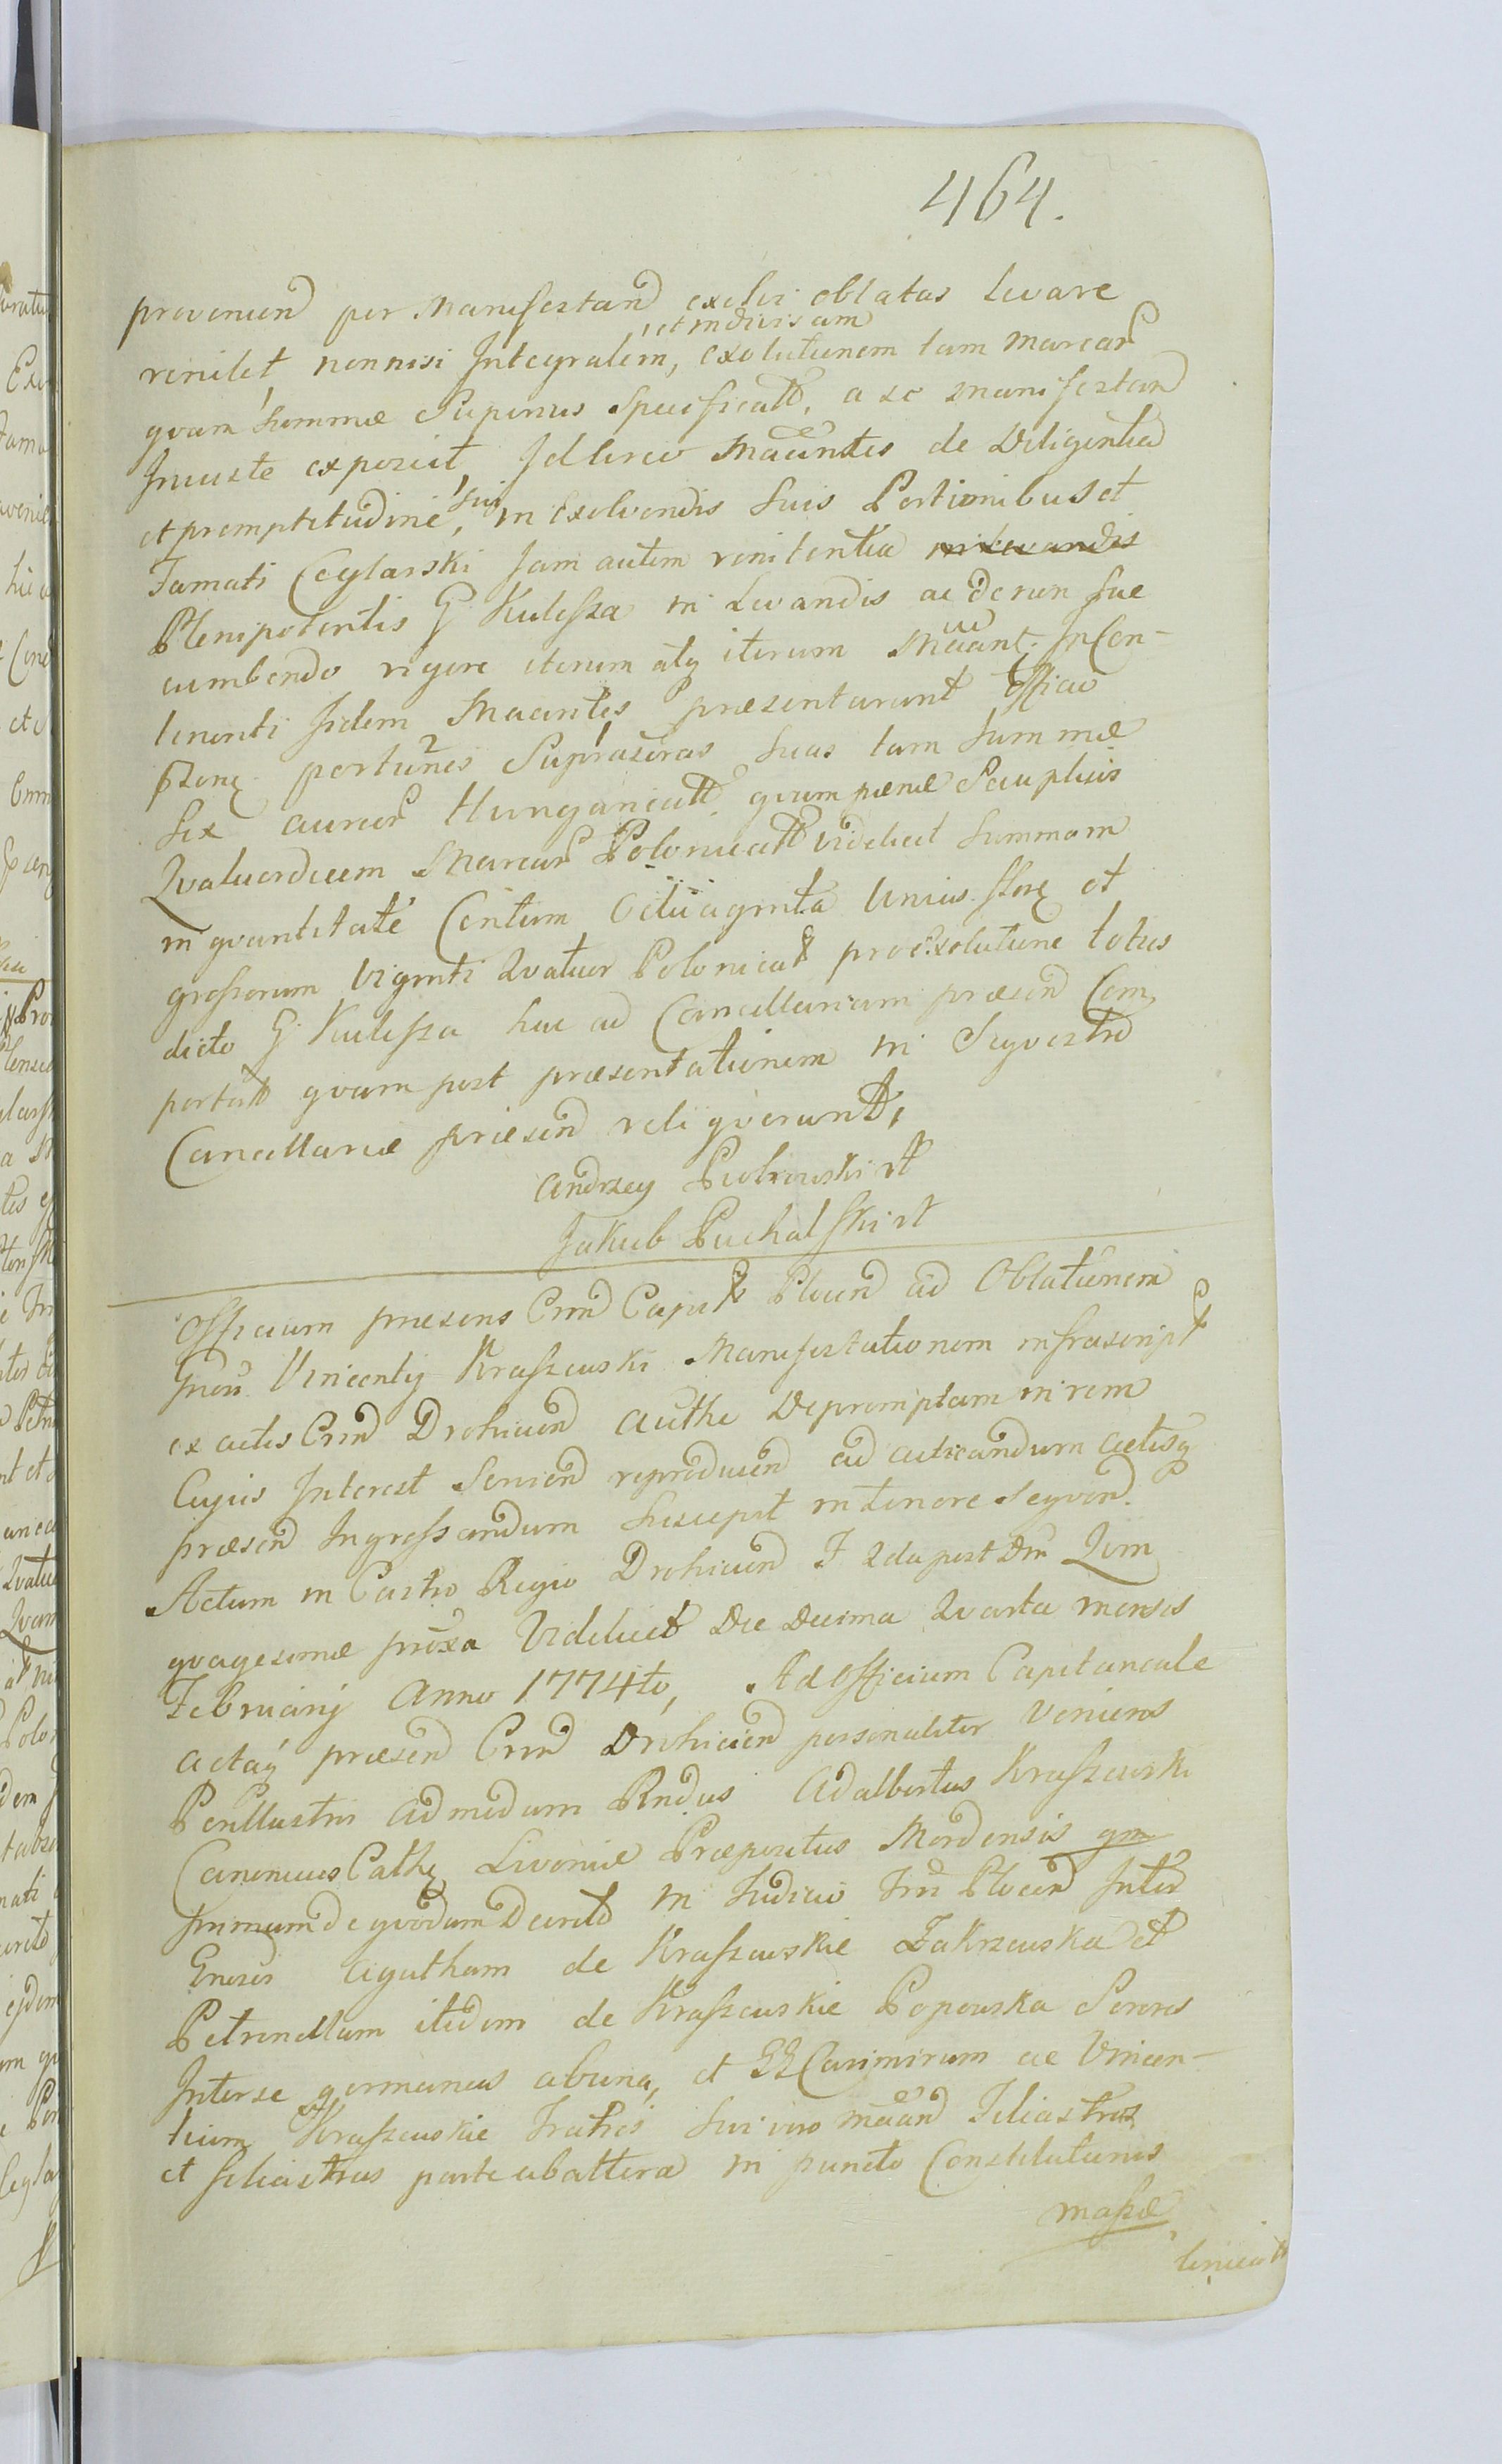 464.
provenien per Manifestand exolvi oblatas levare
renitet nonnisi Integralem, et indivisam exolutionem tam marcar
qvam Summæ Superius Specificatt, a se manifestan
Injuste exposcit, Idcirco Maantes de Diligentia
et promptitudine, sui in Exolvendis Suis Portionibus et
Famati Ceglarski jam autem renitentia in Levandis
Plenipotentis G Kulessza in Levandis ac de non suc
cumbendo rigore iterum atq iterum Maant. In Con-
tinenti Iidem Maantes præsentarunt Officio
pltong portiones Suprascras Suas tam Summæ
Sex aureor Hungaricatt qvam pænæ Scuplicis
Qvatuordecim Marcar Polonicatt videlicet Summam
in qvantitate Centum Octuaginta Unius flong et
grossorum viginti Qvatuor Polonicat pro Exolutione totius
dicto G Kulessza huc ad Cancellariam præsen Com
portatt qvam post præsentationem in Seqvestro
Cancellariæ præsen reliqverunt,
Andrzey Piotrowski
Jakub Puchalski
Officium præsens Crm Capit Plocen ad Oblationem
Gnosi Vincentij Kraszewski Manifestationem infrascript
ex actis Crm Drohicen authe Depromptam in rem
Cujus Interest Servien reproducen ad acticandum Actisq
præsen Ingrossandum Suscepit in tenore Seqven.
Actum in Castro Regio Drohicen F 2da post Dm Qvin
qvagesimæ proxa Videlicet Die Decima Qvarta mensis
Februarij Anno 1774to, Ad Officium Capitaneale
actaq præsen Crm Drohicien personaliter veniens
Perillustris admodum Rndus Adalbertus Kraszewski
Canonicus Cathe Livoniæ Præpositus Mordensis qm
primum de qvodam Decreto in Judicio Plocen Inter
Gnosas Agatham de Kraszewskie Zakrzewska et
Petronellam itidem de Kraszewskie Popowska Sorores
Inter se germanas ab una, et GG Casimirum ac Vincen-
tium Kraszewskie Fratres sui vero maan Filiastros
et filiastras parte ab altera in puncto Constitutionis
massæ